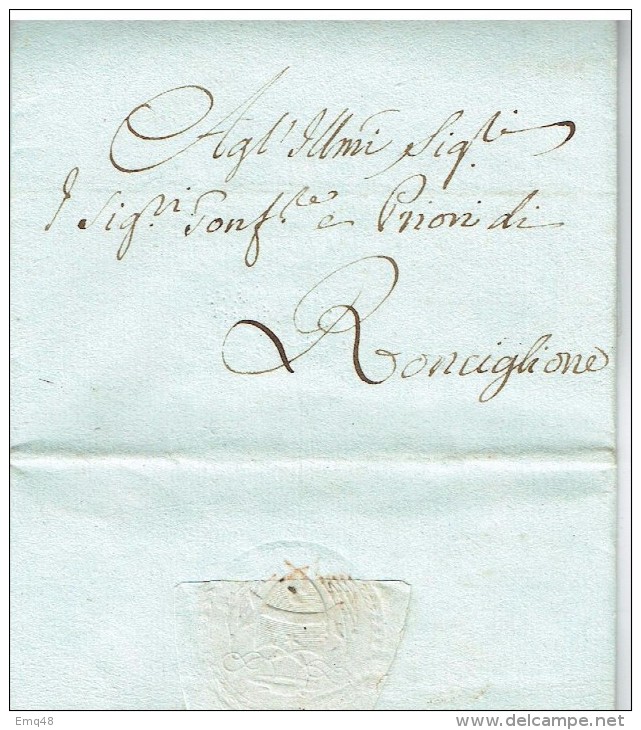 Agl' Illmi Sigri
I Sigri Gonfre e Priori di
Ronciglione
Emq48
www.delcampe.net